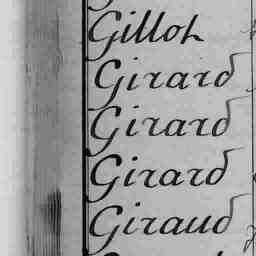 Gillot
Girard
Girard
Girard
Giraud